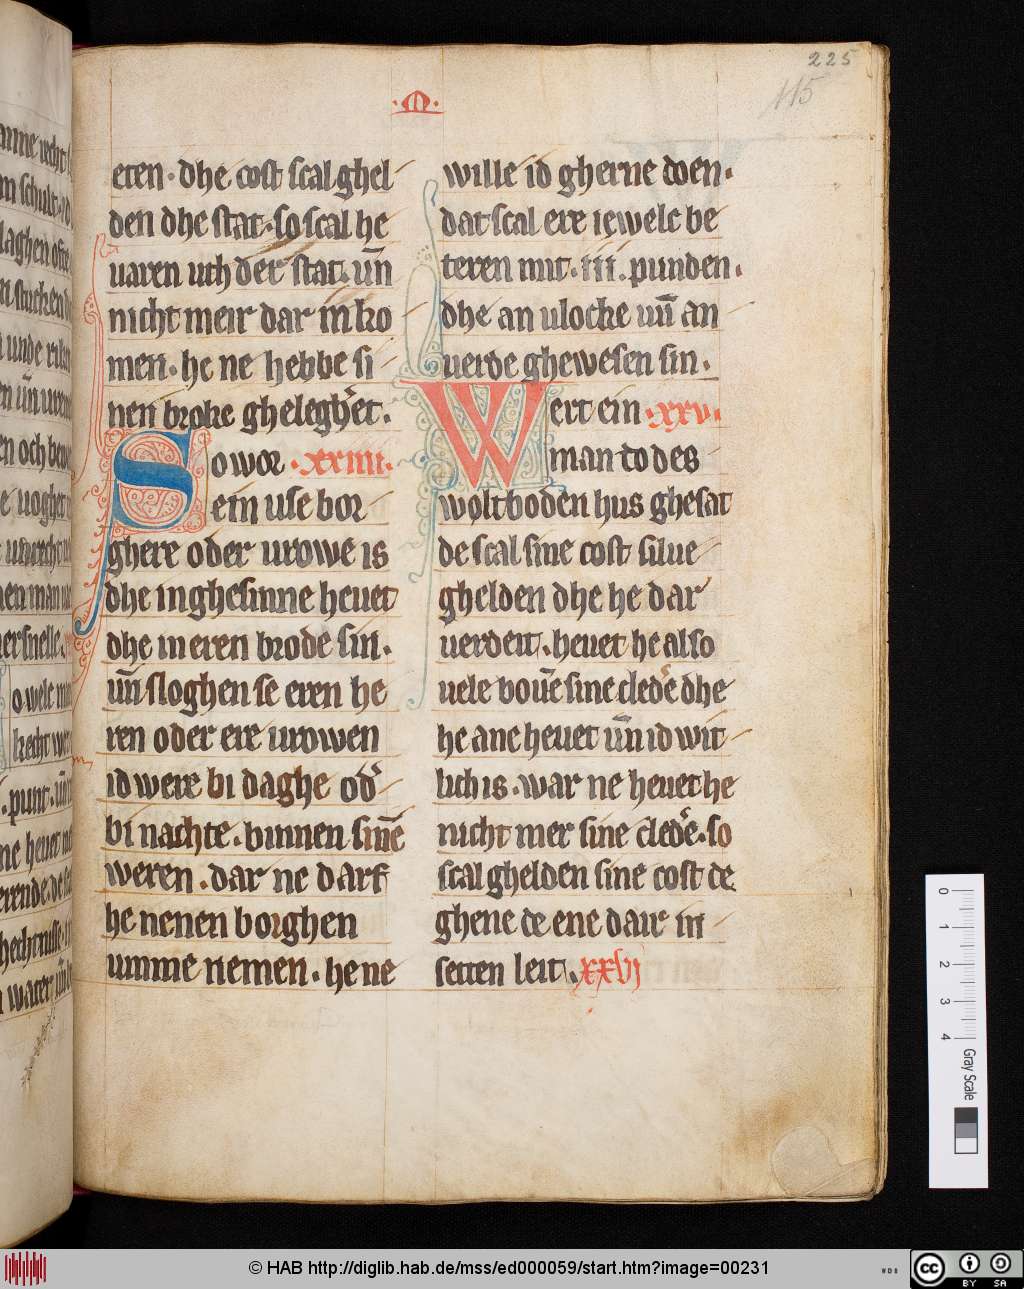 225
115
·M·
eren · dhe cost scal ghel
den dhe stat · so scal he
uaren uth der stat · un̄
nicht meir dar in ko
men · he ne hebbe si
nen broke gheleghet ·
So wor · xxiiii ·
ein use bor
ghere oder urowe is
dhe inghesinne heuet
dhe in eren brode sin ·
un̄ sloghen se eren he
ren oder ere urowen
id were bi daghe od᷑
bi nachte · binnen sinē
weren · dar ne darf
he nenen borghen
umme nemen · he ne
wille id gherne doen ·
dat scal ere iewelc be
teren mit · iii · punden ·
dhe an ulocke un̄ an
uerde ghewesen sin ·
Wert ein · xxv ·
man to des
woltboden hus ghesat
de scal sine cost silue
ghelden dhe he dar
uerdeit · heuet he also
uele bouē sine clede᷑ dhe
he ane heuet un̄ id wit
lich is · war ne heuet he
nicht mer sine clede᷑ · so
scal ghelden sine cost de
ghene de ene dair in
setten leit · xxvi
© HAB http://diglib.hab.de/mss/ed000059/start.htm?image=00231
0
1
2
3
4
Gray Scale
WDB
cc
BY SA